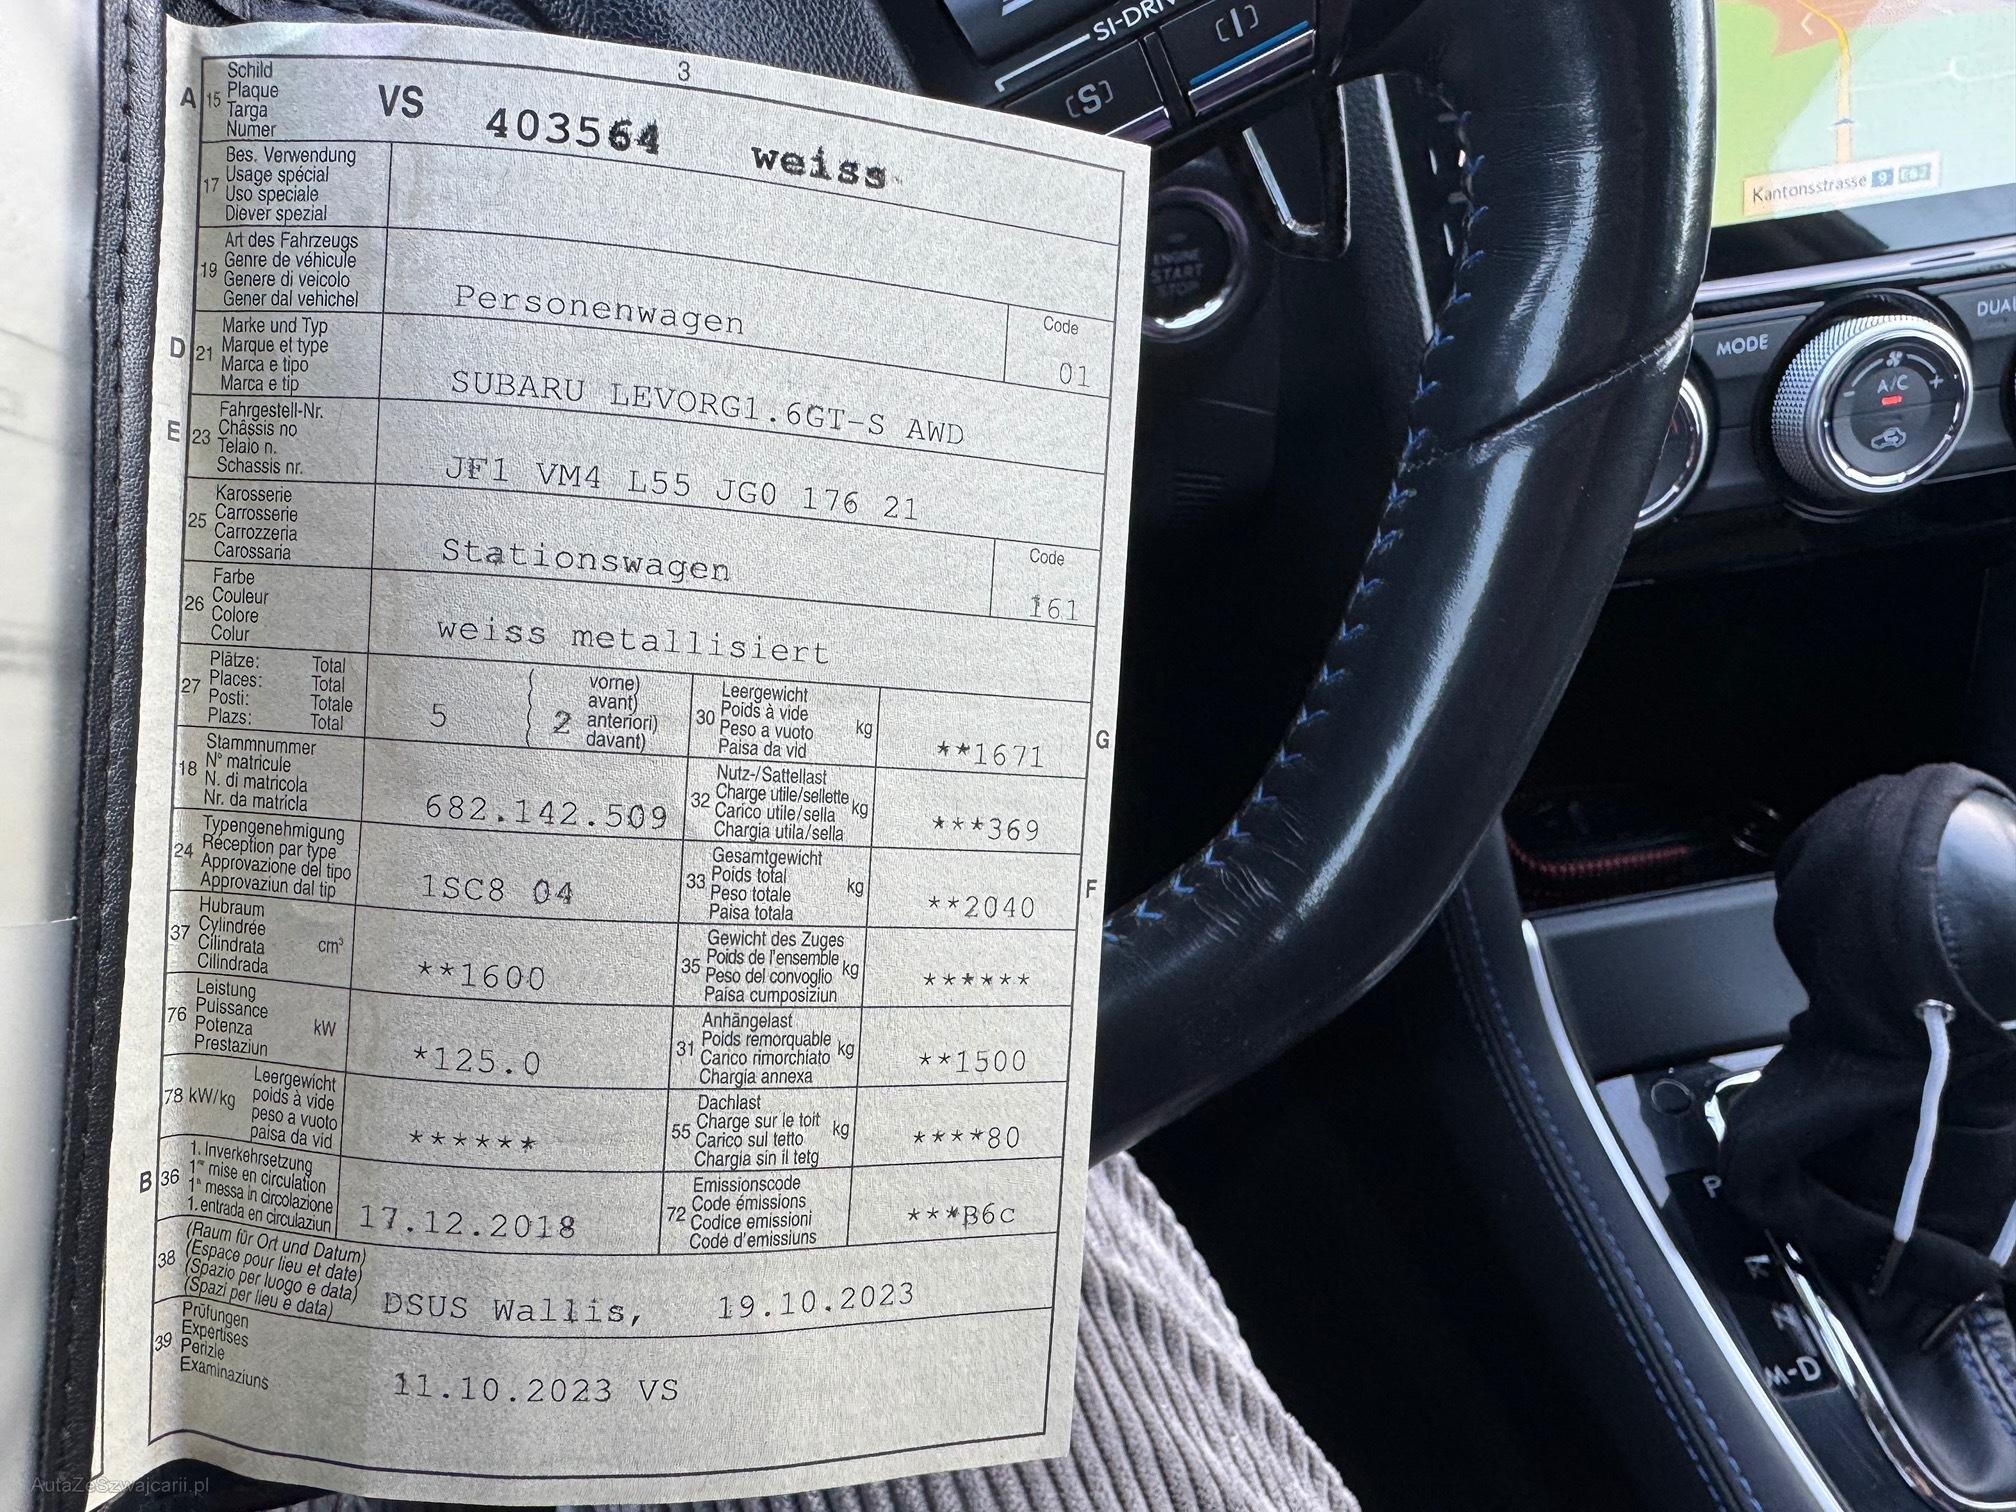 3
A 15 Schild
Plaque
Targa
Numer
VS 403564 weiss
17 Bes. Verwendung
Usage spécial
Uso speciale
Diever spezial
19 Art des Fahrzeugs
Genre de véhicule
Genere di veicolo
Gener dal vehichel
Personenwagen
Code
01
D 21 Marke und Typ
Marque et type
Marca e tipo
Marca e tip
SUBARU LEVORG1.6GT-S AWD
E 23 Fahrgestell-Nr.
Châssis no
Telaio n.
Schassis nr.
JF1 VM4 L55 JG0 176 21
25 Karosserie
Carrosserie
Carrozzeria
Carossaria
Stationswagen
Code
161
26 Farbe
Couleur
Colore
Colur
weiss metallisiert
27 Plätze: Total
Places: Total
Posti: Totale
Plazs: Total
5
2
vorne)
avant)
anteriori)
davant)
30 Leergewicht
Poids à vide kg
Peso a vuoto
Paisa da vid
**1671
G
18 Stammnummer
N° matricule
N. di matricola
Nr. da matricla
682.142.509
32 Nutz-/Sattellast
Charge utile/sellette kg
Carico utile/sella
Chargia utila/sella
***369
24 Typengenehmigung
Réception par type
Approvazione del tipo
Approvaziun dal tip
1SC8 04
33 Gesamtgewicht
Poids total kg
Peso totale
Paisa totala
**2040
F
37 Hubraum
Cylindrée
Cilindrata cm³
Cilindrada
**1600
35 Gewicht des Zuges
Poids de l'ensemble kg
Peso del convoglio
Paisa cumposiziun
******
76 Leistung
Puissance
Potenza kW
Prestaziun
*125.0
31 Anhängelast
Poids remorquable kg
Carico rimorchiato
Chargia annexa
**1500
78 kW/kg Leergewicht
poids à vide
peso a vuoto
paisa da vid
******
55 Dachlast
Charge sur le toit kg
Carico sul tetto
Chargia sin il tetg
****80
B 36 1. Inverkehrsetzung
1re mise en circulation
1a messa in circolazione
1. entrada en circulaziun
17.12.2018
72 Emissionscode
Code émissions
Codice emissioni
Code d'emissiuns
***B6c
38 (Raum für Ort und Datum)
(Espace pour lieu et date)
(Spazio per luogo e data)
(Spazi per lieu e data)
DSUS Wallis, 19.10.2023
39 Prüfungen
Expertises
Perizie
Examinaziuns
11.10.2023 VS
SI-DRIV
[S]
[I]
ENGINE
START
STOP
Kantonsstrasse 9 E62
MODE
DUAL
A/C
- +
P
R
N
M-D
AutaZeSzwajcarii.pl